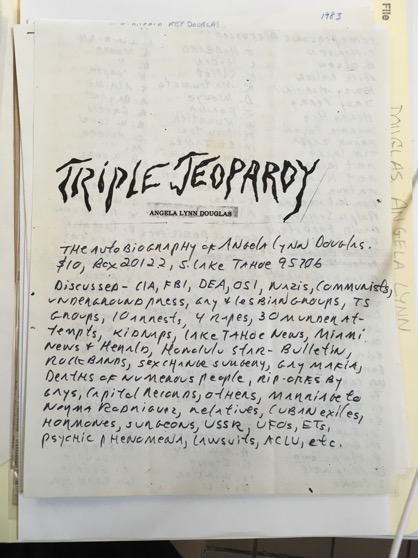 1983
KEY DOUGLAS
File
DOUGLAS, ANGELA LYNN
TRIPLE JEOPARDY
ANGELA LYNN DOUGLAS
THE AUTOBIOGRAPHY OF ANGELA LYNN DOUGLAS.
$10, BOX 20122, S. LAKE TAHOE 95706
DISCUSSED - CIA, FBI, DEA, OSI, NAZIS, COMMUNISTS,
UNDERGROUND PRESS, GAY & LESBIAN GROUPS, TS
GROUPS, 10 ARRESTS, 4 RAPES, 30 MURDER AT-
TEMPTS, KIDNAPS, LAKE TAHOE NEWS, MIAMI
NEWS & HERALD, HONOLULU STAR-BULLETIN,
ROCK BANDS, SEX CHANGE SURGERY, GAY MAFIA,
DEATHS OF NUMEROUS PEOPLE, RIP-OFFS BY
GAYS, CAPITAL RECORDS, OTHERS, MARRIAGE TO
NORMA RODRIGUEZ, RELATIVES, CUBAN EXILES,
HORMONES, SURGEONS, USSR, UFOS, ETS,
PSYCHIC PHENOMENA, LAWSUITS, ACLU, etc.